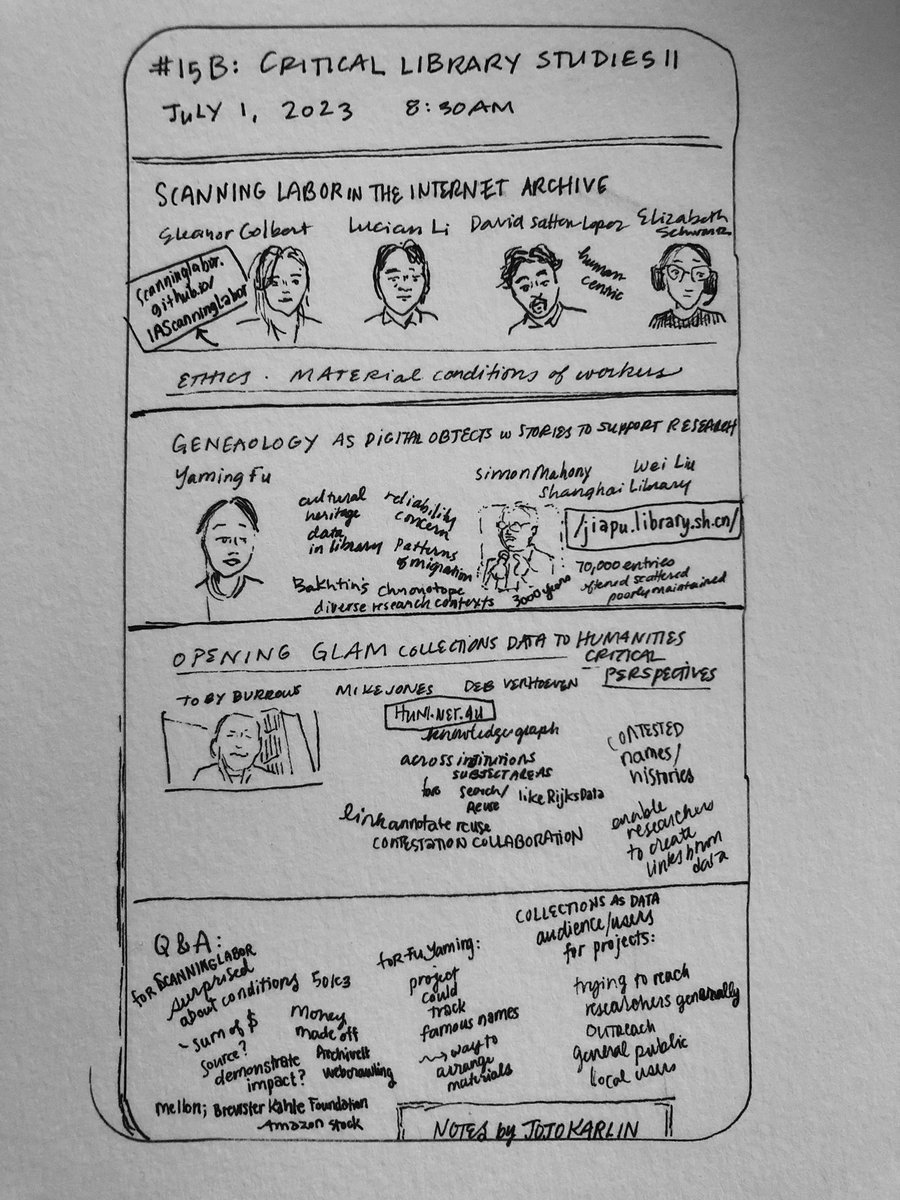 #15B: CRITICAL LIBRARY STUDIES II
JULY 1, 2023 8:30AM
SCANNING LABOR IN THE INTERNET ARCHIVE
Eleanor Colbert Lucian Li David Sutton-Lopez Elizabeth Schwartz
Scanninglabor.
github.io/
IAScanningLabor
human-
centric
ETHICS · MATERIAL conditions of workers
GENEAOLOGY AS DIGITAL OBJECTS W STORIES TO SUPPORT RESEARCH
Yaming Fu
cultural
heritage
data
in library
reliability
concern
Patterns
of migration
Bakhtin's Chronotope
diverse research contexts
Simon Mahony Wei Liu
Shanghai Library
/jiapu.library.sh.cn/
3000 years
70,000 entries
oftened scattered
poorly maintained
OPENING GLAM COLLECTIONS DATA TO HUMANITIES
CRITICAL
PERSPECTIVES
TOBY BURROWS MIKE JONES DEB VERHOEVEN
HUNI.NET.AU
knowledge graph
across institutions
SUBJECT AREAS
for search/
reuse
like RijksData
link annotate reuse
CONTESTATION COLLABORATION
CONTESTED
names/
histories
enable
researchers
to create
links btwn
data
Q & A:
for SCANNING LABOR
surprised
about conditions
- sum of $
source?
demonstrate
impact?
501c3
Money
made off
ArchiveIt
webcrawling
mellon; Brewster Kahle Foundation
Amazon stock
for Fu Yaming:
project
could
track
famous names
way to
arrange
materials
COLLECTIONS AS DATA
audience/users
for projects:
trying to reach
researchers generally
outreach
general public
local users
NOTES by JOJO KARLIN